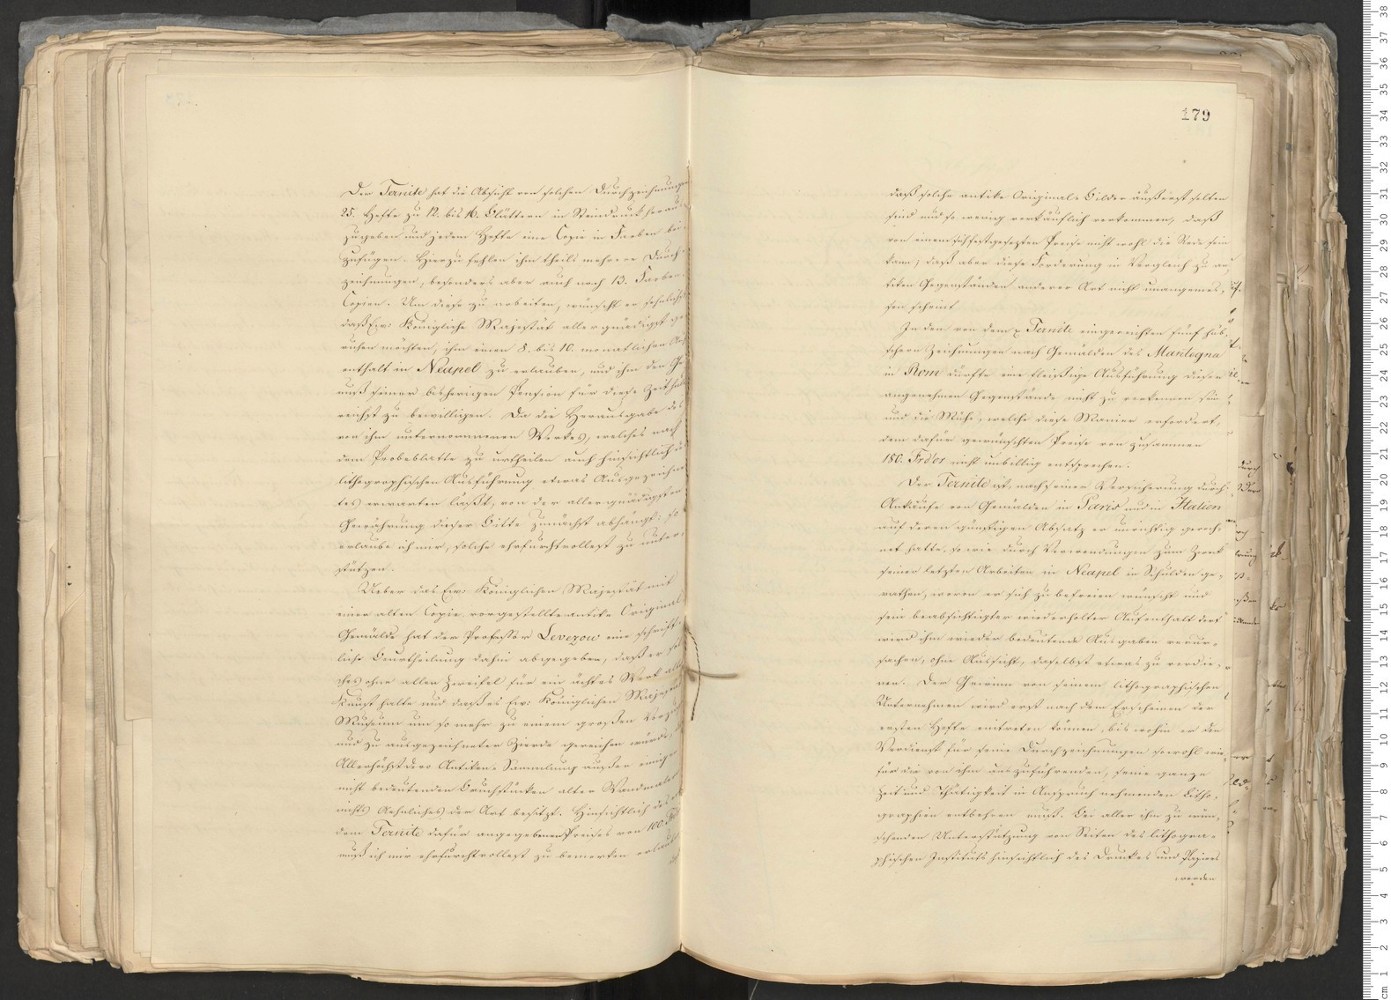 Der Ternite hat die Absicht von solchen Durchzeichnungen
25. Hefte zu 12. bis 16. Blättern in Steindruck heraus
zugeben und jedem Hefte eine Copie in Farben bei
zufügen. Hierzu fehlen ihm theils mehrere Durch
zeichnungen, besonders aber auch noch 13. Farben
Copien. Um diese zu arbeiten, wünscht er sehnlichst
daß Ew. Königliche Majestät allergnädigst ge
ruhen möchten, ihm einen 8. bis 10. monatlichen Auf
enthalt in Neapel zu erlauben, und ihm den Ge
nuß seiner bisherigen Pension für diese Zeit
zu bewilligen. Da die Herausgabe des
von ihm unternommenen Werkes, welches nach
dem Probeblatte zu urtheilen auch hinsichtlich der
lithographischen Ausführung etwas Ausgezeichne
tes erwarten läßt, von der allergnädigsten
Gewährung dieser Bitte zunächst abhängt; so
erlaube ich mir, solche ehrfurchtsvollest zu unter
stützen.
Ueber das Ew. Königlichen Majestät mit
einer alten Copie vorgestellte antike Original
Gemälde hat der Professor Levezow eine schrift
liche Beurtheilung dahin abgegeben, daß er
ches ohne allen Zweifel für ein ächtes Werk alter
Kunst halte und daß es Ew. Königlichen Majestät
Museum um so mehr zu einem großen Vorzug
und zu ausgezeichneter Zierde gereichen würde,
Allerhöchstdero Antiken-Sammlung außer einigen
nicht bedeutenden Bruchstücken alter Wandmalerei
nichts Aehnliches der Art besitzt. Hinsichtlich des
dem Ternite dafür angegebenen Preises von 100.
muß ich mir ehrfurchtsvollest zu bemerken erlauben
179
daß solche antike Original-Bilder äußerst selten
sind und so wenig verkäuflich vorkommen, daß
von einem festgesetzten Preise nicht wohl die Rede sein
kann, daß aber diese Forderung in Vergleich zu an
tiken Gegenständen anderer Art nicht unangemes
sen scheint.
In den von dem p Ternite eingereichten fünf hüb
schen Zeichnungen nach Gemälden des Mantegna
in Rom dürfte eine fleißige Ausführung dieser
angenehmen Gegenstände nicht zu verkennen sein
und die Mühe, welche diese Manier erfordert,
dem dafür gewünschten Preise von zusammen
150. Frdor nicht unbillig entsprechen.
Der Ternite ist, nach seiner Versicherung durch
Ankäufe von Gemälden in Paris und in Italien
auf deren günstigen Absatz er unrichtig gerech
net hatte, so wie durch Verwendungen zum Zweck
seiner letzten Arbeiten in Neapel in Schulden ge
rathen, wovon er sich zu befreien wünscht und
sein beabsichtigter wiederholter Aufenthalt dort
wird ihm wieder bedeutende Ausgaben verur
sachen, ohne Aussicht, daselbst etwas zu verdie
nen. Der Gewinn von seinem lithographischen
Unternehmen wird erst nach dem Erscheinen der
ersten Hefte eintreten können, bis wohin er den
Verdienst für seine Durchzeichnungen sowohl wie
für die von ihm auszuführenden, seine ganze
Zeit und Thätigkeit in Anspruch nehmenden Litho
graphien entbehren muß. Bei aller ihm zu wün
schenden Unterstützung von Seiten des lithogra
phischen Instituts hinsichtlich des Druckes und Papiers
werden